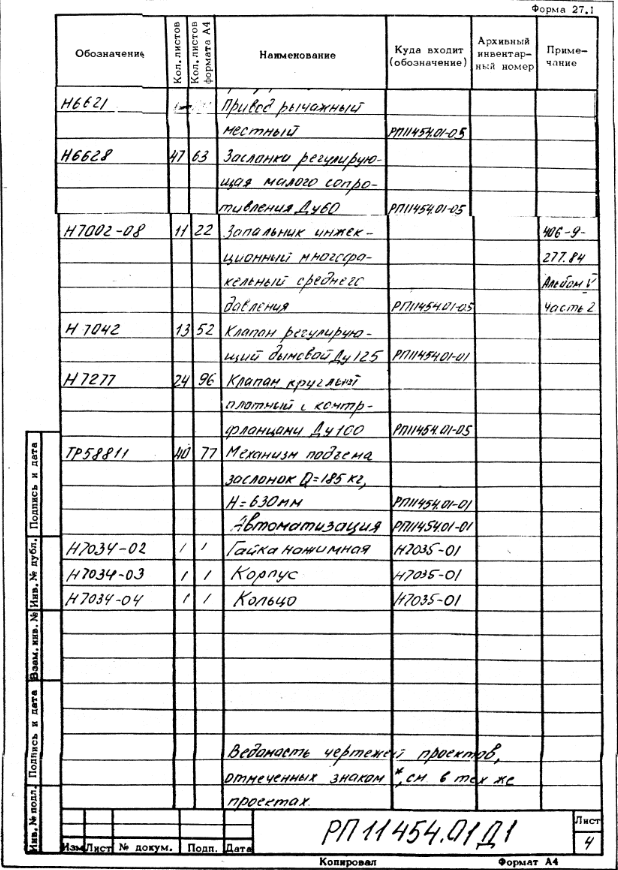 Форма 27.1
Обозначение Кол. листов Кол. листов формата А4 Наименование Куда входит (обозначение) Архивный инвентар- ный номер Приме- чание
Н6621 Привод рычажный
местный РП11454.01-05
Н6628 47 63 Заслонка регулирую-
щая малого сопро-
тивления Ду60 РП11454.01-05
Н7002-08 11 22 Запальник инжек- 406-9-
ционный многофа- 277.84
кельный среднего Альбом V
давления РП11454.01-05 часть 2
Н 7042 13 52 Клапан регулирую-
щий дымовой Ду125 РП11454.01-01
Н7277 24 96 Клапан круглый
плотный с контр-
фланцами Ду100 РП11454.01-05
ТР58811 40 77 Механизм подъема
заслонок Q=185 кг,
Н=630мм РП11454.01-01
Автоматизация РП11454.01-01
Н7034-02 1 1 Гайка нажимная Н7035-01
Н7034-03 1 1 Корпус Н7035-01
Н7034-04 1 1 Кольцо Н7035-01
Ведомость чертежей проектов,
отмеченных знаком *, см. в тех же
проектах
Инв. № подл. Подпись и дата Взам. инв. № Инв. № дубл. Подпись и дата
РП 11454.01 Д1
Лист
4
Изм Лист № докум. Подп. Дата
Копировал Формат А4